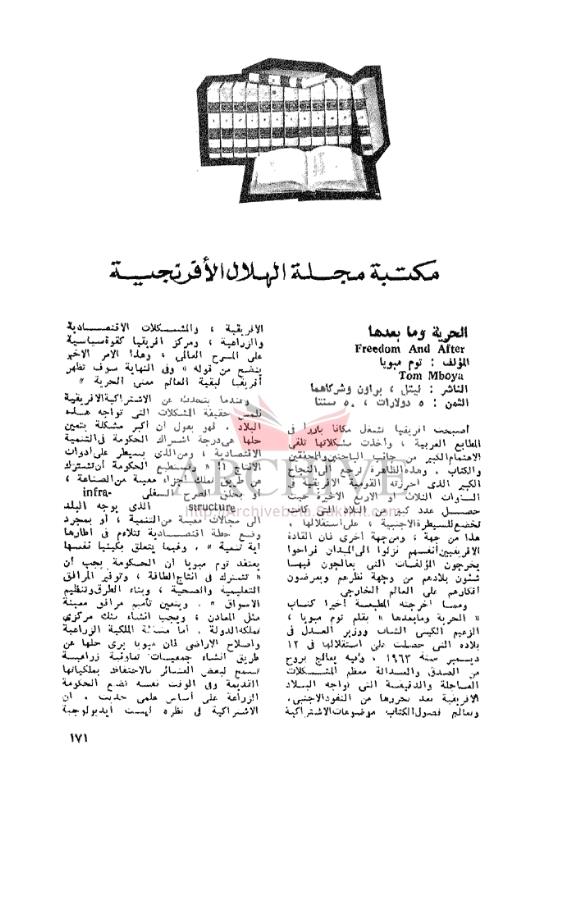 مكتبة مجلة الهلال الأفرنجية
الحرية وما بعدها
Freedom And After
المؤلف : توم مبويا
Tom Mboya
الناشر : ليتل ، براون وشركاهما
الثمن : ٥ دولارات ، ٥٠ سنتا
أصبحت افريقيا تشغل مكانا بارزا في
المطابع الغربية ، وأخذت مشكلاتها تلقى
الاهتمام الكبير من جانب الباحثين والمحققين
والكتاب . وهذه الظاهرة ترجع الى النجاح
الكبير الذى احرزته القومية الافريقية فى
السنوات الثلاث او الاربع الاخيرة حيث
حصل عدد كبير من البلاد التى كانت
تخضع للسيطرة الاجنبية ، على استقلالها .
هذا من جهة ، ومن جهة اخرى فان القادة
الافريقيين أنفسهم نزلوا الى الميدان فراحوا
يخرجون المؤلفات التى يعالجون فيها
شئون بلادهم من وجهة نظرهم ويعرضون
افكارهم على العالم الخارجى
ومما اخرجته المطبعة أخيرا كتاب
« الحرية وما بعدها » بقلم توم مبويا ،
الزعيم الكينى الشاب ووزير العدل فى
بلاده التى حصلت على استقلالها فى ١٢
ديسمبر سنة ١٩٦٣ . وفيه يعالج بروح
من الصدق والعدالة معظم المشكلات
العاجلة والدقيقة التى تواجه البلاد
الافريقية بعد تحررها من النفوذ الاجنبى .
وتعالج فصول الكتاب موضوعات الاشتراكية
الافريقية ، والمشكلات الاقتصادية
والزراعية ، ومركز افريقيا كقوة سياسية
على المسرح العالمى ، وهذا الامر الاخير
يتضح من قوله « وفى النهاية سوف تظهر
أفريقيا لبقية العالم معنى الحرية »
وعندما يتحدث عن الاشتراكية الافريقية
نلمس حقيقة المشكلات التى تواجه هذه
البلاد . فهو يقول ان أكبر مشكلة يتعين
حلها هى درجة اشتراك الحكومة فى التنمية
الاقتصادية ، ومن الذى يسيطر على ادوات
الانتاج . هل تستطيع الحكومة أن تشترك
عن طريق تملك أجزاء معينة من الصناعة ،
او بخلق الصرح السفلى infra-
structure الذى يوجه البلد
الى مجالات معينة من التنمية ، أو بمجرد
وضع خطة اقتصادية تتلاءم فى اطارها
أية تنمية » . وفيما يتعلق بكينيا نفسها
يعتقد توم مبويا ان الحكومة يجب أن
« تشترك فى انتاج الطاقة ، وتوفير المرافق
التعليمية والصحية ، وبناء الطرق وتنظيم
الاسواق » . ويتعين تأميم مرافق معينة
مثل المعادن ، ويجب انشاء بنك مركزى
تملكه الدولة . أما مسألة الملكية الزراعية
واصلاح الاراضى فان مبويا يرى حلها عن
طريق انشاء جمعيات تعاونية زراعية
تسمح لبعض العشائر بالاحتفاظ بملكياتها
القديمة وفى الوقت نفسه تضع الحكومة
الزراعة على أساس علمى حديث . ان
الاشتراكية فى نظره ليست ايديولوجية
١٧١
ARCHIVE
http://Archivebeta.Sakhrit.com